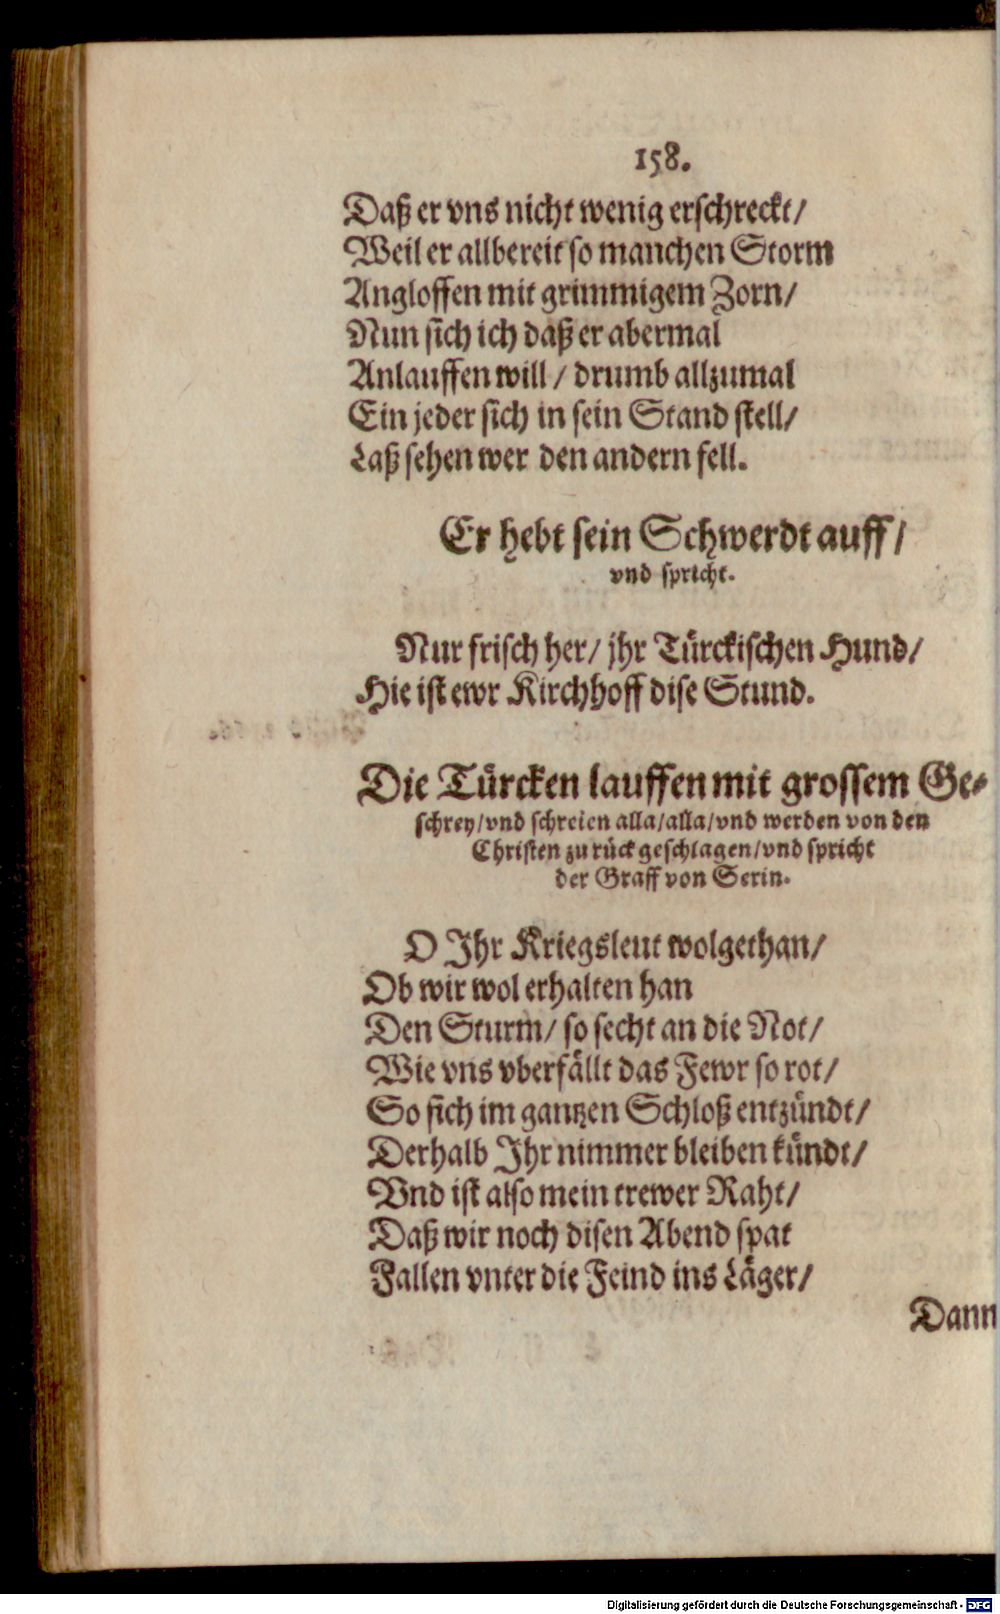 158.
Daß er vns nicht wenig erschreckt/
Weil er allbereit so manchen Storm
Angloffen mit grimmigem Zorn/
Nun sich ich daß er abermal
Anlauffen will / drumb allzumal
Ein jeder sich in sein Stand stell/
Laß sehen wer den andern fell.
Er hebt sein Schwerdt auff/
vnd spricht.
Nur frisch her/ jhr Türckischen Hund/
Hie ist ewr Kirchhoff dise Stund.
Die Türcken lauffen mit grossem Ge-
schrey/vnd schreien alla/alla/vnd werden von den
Christen zu rück geschlagen/vnd spricht
der Graff von Serin.
O Ihr Kriegsleut wolgethan/
Ob wir wol erhalten han
Den Sturm/ so secht an die Not/
Wie vns vberfällt das Fewr so rot/
So sich im gantzen Schloß entzündt/
Derhalb Ihr nimmer bleiben kündt/
Vnd ist also mein trewer Raht/
Daß wir noch disen Abend spat
Fallen vnter die Feind ins Läger/
Dann
Digitalisierung gefördert durch die Deutsche Forschungsgemeinschaft - DFG